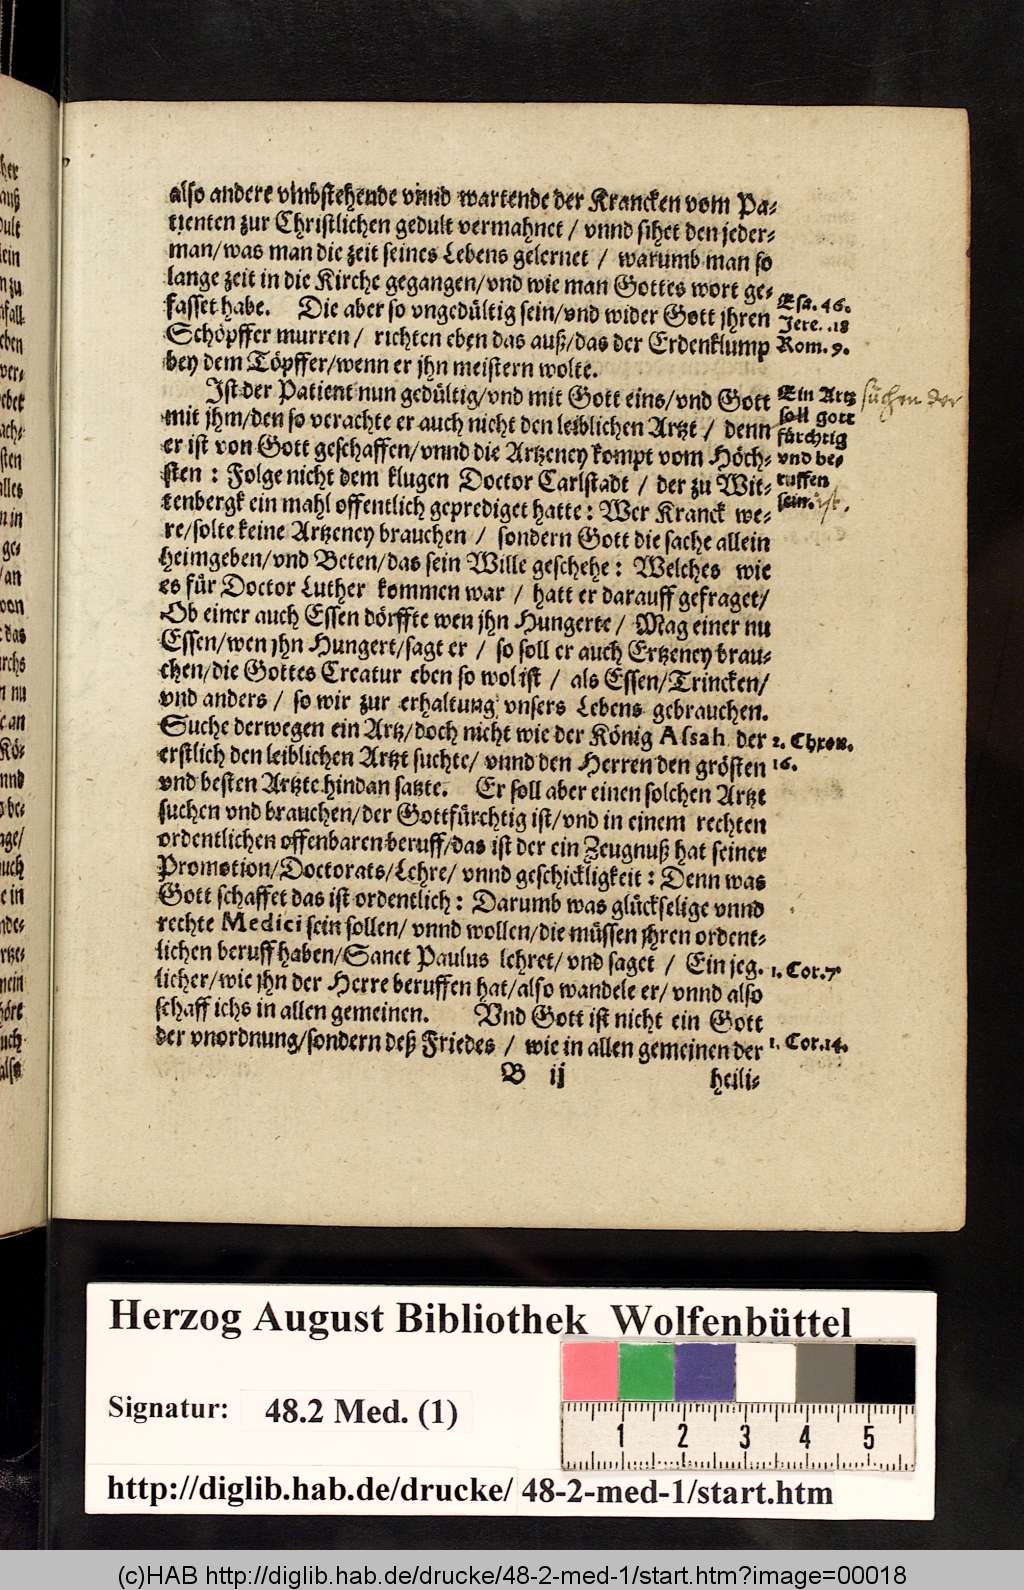 also andere vmbstehende vnnd wartende der Krancken vom Pa-
tienten zur Christlichen gedult vermahnet / vnnd sihet den jeder-
man/was man die zeit seines Lebens gelernet / warumb man so
lange zeit in die Kirche gegangen/vnd wie man Gottes wort ge-
fasset habe. Die aber so vngedültig sein/vnd wider Gott jhren
Schöpffer murren / richten eben das auß/das der Erdenklump
bey dem Töpffer/wenn er jhn meistern wolte.
Esa. 46.
Jere. 18
Rom. 9.
Ist der Patient nun gedültig/vnd mit Gott eins/vnd Gott
mit jhm/den so verachte er auch nicht den leiblichen Artzt / denn
er ist von Gott geschaffen/vnnd die Artzeney kompt vom Höch-
sten : Folge nicht dem klugen Doctor Carlstadt / der zu Wit-
tenbergk ein mahl offentlich geprediget hatte : Wer Kranck we-
re/solte keine Artzeney brauchen / sondern Gott die sache allein
heimgeben/vnd Beten/das sein Wille geschehe : Welches wie
es für Doctor Luther kommen war / hatt er darauff gefraget/
Ob einer auch Essen dörffte wen jhn Hungerte / Mag einer nu
Essen/wen jhn Hungert/sagt er / so soll er auch Ertzeney brau-
chen/die Gottes Creatur eben so wol ist / als Essen/Trincken/
vnd anders / so wir zur erhaltung vnsers Lebens gebrauchen.
Suche derwegen ein Artz/doch nicht wie der König Assah der
erstlich den leiblichen Artzt suchte/ vnnd den Herren den grösten
vnd besten Artzte hindan satzte. Er soll aber einen solchen Artzt
suchen vnd brauchen/der Gottfürchtig ist/vnd in einem rechten
ordentlichen offenbaren beruff/das ist der ein Zeugnuß hat seiner
Promotion/Doctorats/Lehre/ vnnd geschickligkeit : Denn was
Gott schaffet das ist ordentlich : Darumb was glückselige vnnd
rechte Medici sein sollen/ vnnd wollen/die müssen jhren ordent-
lichen beruff haben/Sanct Paulus lehret/ vnd saget / Ein jeg.
licher/wie jhn der Herre beruffen hat/also wandele er/ vnnd also
schaff ichs in allen gemeinen. Vnd Gott ist nicht ein Gott
der vnordnung/sondern deß Friedes / wie in allen gemeinen der
Ein Artz süchen der
soll gott
fürchtig
vnd be-
ruffen
sein. ist.
2. Chron.
16.
1. Cor. 7
1. Cor. 14.
B ij heili-
Herzog August Bibliothek Wolfenbüttel
Signatur: 48.2 Med. (1)
1 2 3 4 5
http://diglib.hab.de/drucke/ 48-2-med-1/start.htm
(c)HAB http://diglib.hab.de/drucke/48-2-med-1/start.htm?image=00018